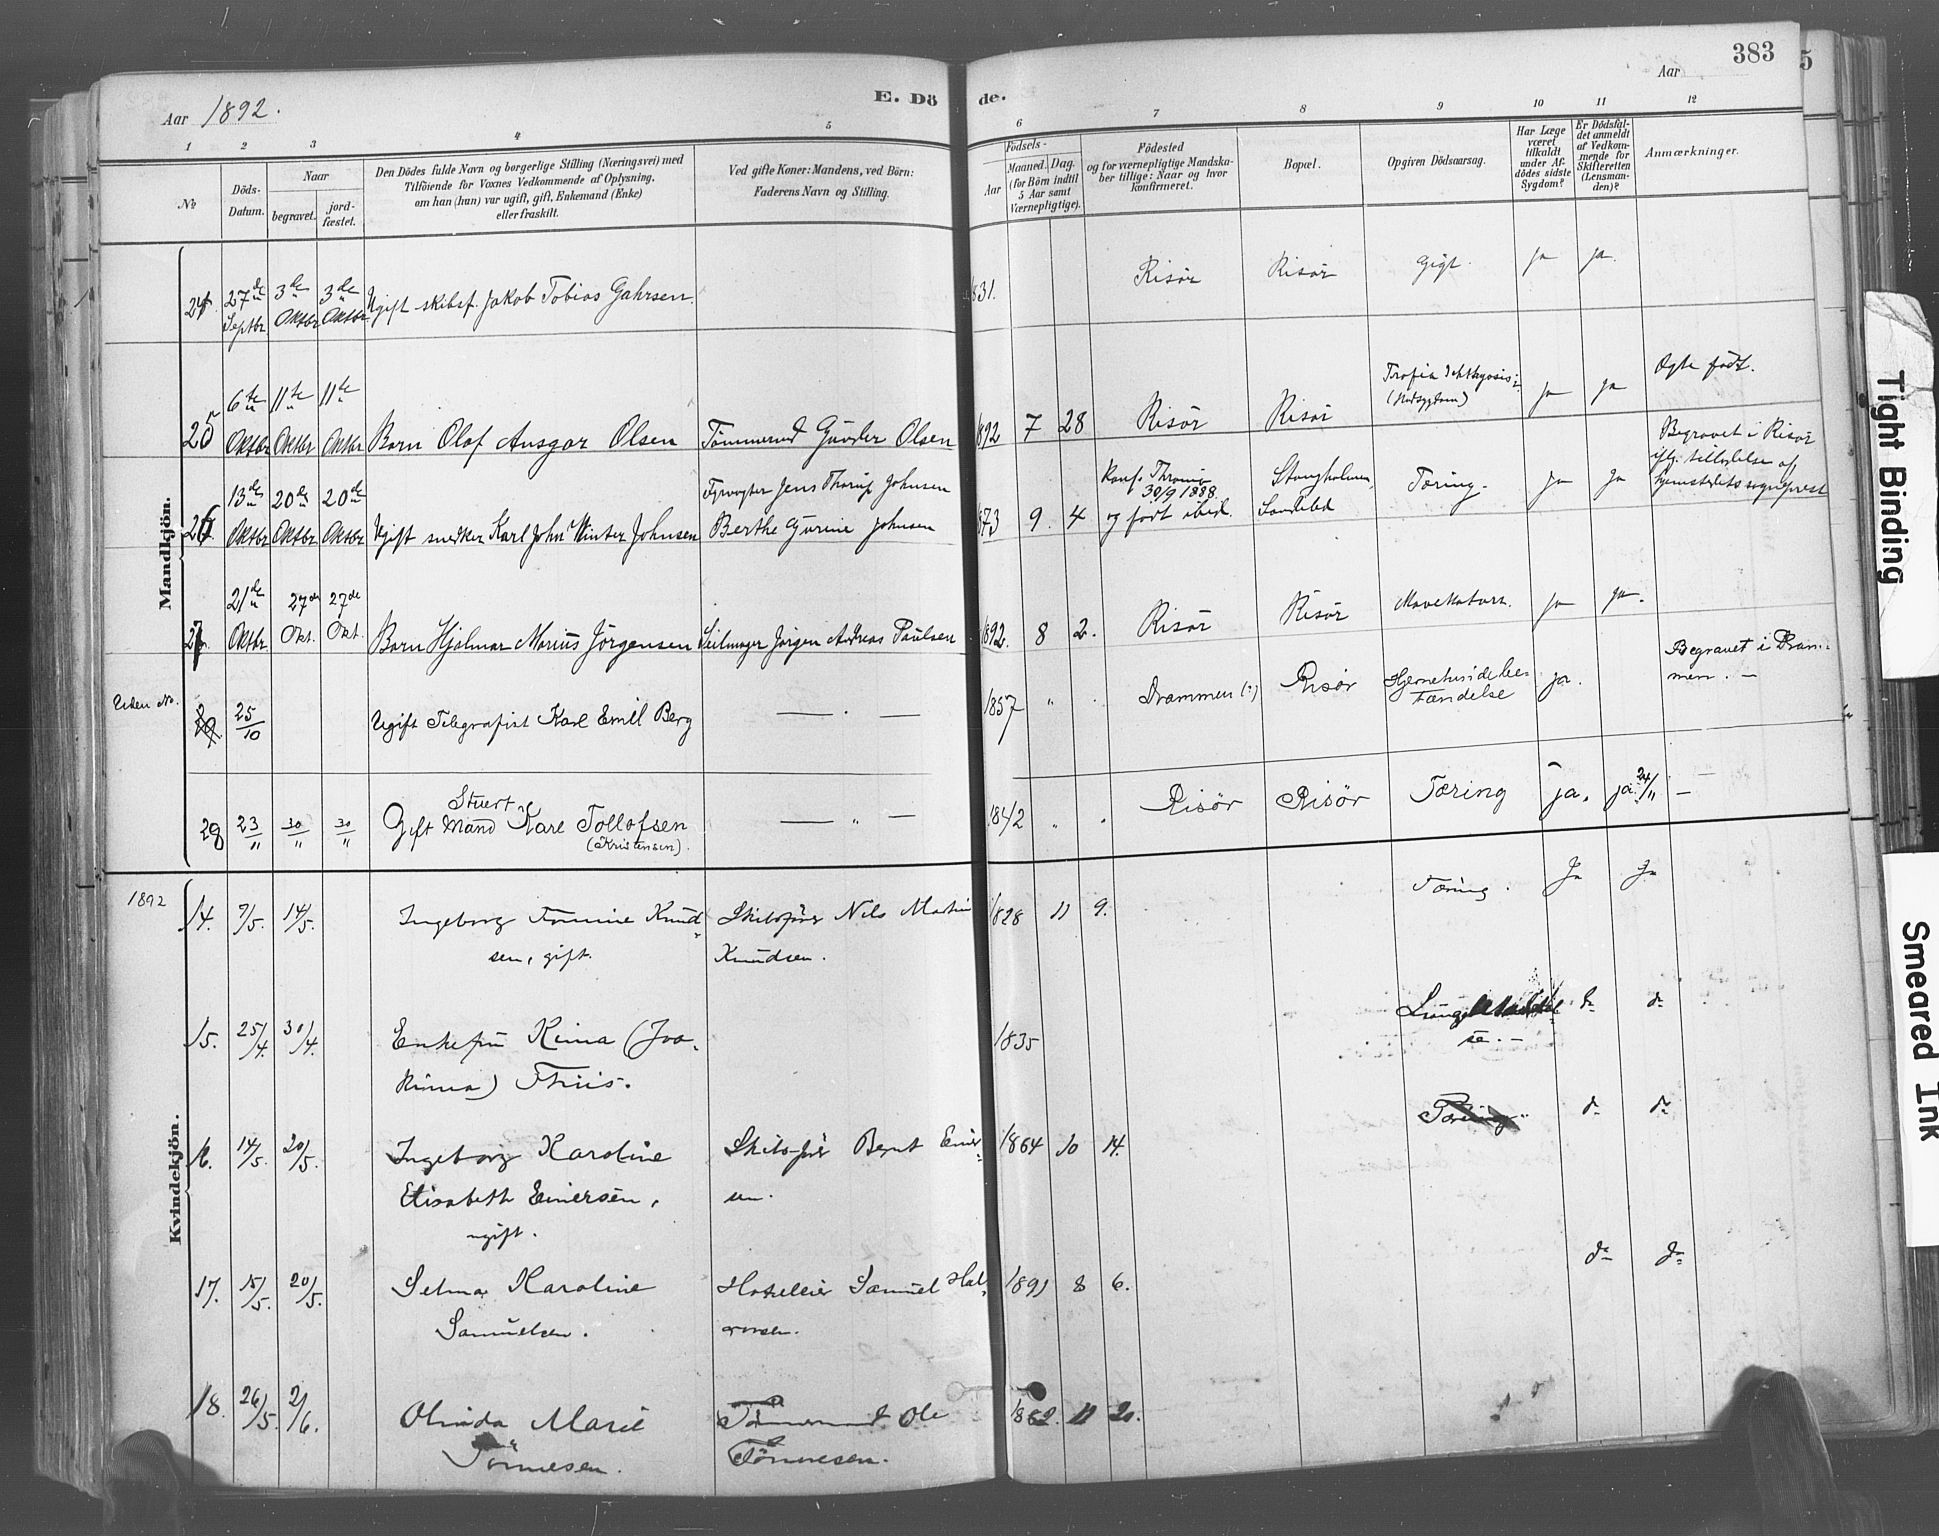 383
5
Aar 1892.
E. Dö
de.
Aar
1 2 3 4 5 6 7 8 9 10 11 12
№
Döds-Datum.
Naar
begravet.
jord-fæstet.
Den Dödes fulde Navn og borgerlige Stilling (Næringsvei) med
Tilföiende for Voxnes Vedkommende af Oplysning,
om han (hun) var ugift, gift, Enkemand (Enke)
eller fraskilt.
Ved gifte Koner: Mandens, ved Börn:
Faderens Navn og Stilling.
Födsels-
Aar
Maaned.
Dag.
(for Börn indtil
5 Aar samt
Værnepligtige).
Födested
og for værnepligtige Mandska-
ber tillige: Naar og hvor
konfirmeret.
Bopæl.
Opgiven Dödsaarsag.
Har Læge
været
tilkaldt
under Af-
dödes sidste
Sygdom?
Er Dödsfal-
det anmeldt
af Vedkom-
mende for
Skifteretten
(Lensman-
den)?
Anmærkninger.
Mandkjön.
24. 27de Septbr 3de Oktbr 3de Oktbr Ugift skibsf. Jakob Tobias Gahrsen 1831. Risör Risör Gigt. ja ja.
25 6te Oktbr 11te Oktbr 11te Oktbr Barn Olaf Ansgar Olsen Tömmermd Gunder Olsen 1892 7 28 Risör Risör ja ja Ægte födt.
26 13de Oktbr 20de Oktbr 20de Oktbr Ugift snedker Karl Johs Winter Johnsen
Fyrvogter Jens Thorup Johnsen
Berthe Gurine Johnsen
1873 9. 4
Konf. Thromö
30/9 1888
og födt ibid.
Stangholmen,
Sandelad
Tæring. ja ja
Begravet i Risör
27 21de Oktbr 27de Okt. 27de Okt. Barn Hjalmar Marius Jörgensen Seilmager Jörgen Andreas Paulsen 1892. 8 2. Risör Risör Mavekatarr. ja ja.
Uden No. 25/10 Ugift Telegrafist Karl Emil Berg — . — 1857 " . Drammen (?) Risör Hjernehindebe-
tændelse ja.
Begravet i Dram-
men. —
28 23/11 30/11 30/11 Gift Mand Stuert Karl Tollofsen
(Kristensen).
— " — 1842 " . Risör Risör Tæring ja. ja 24/11 —
Kvindekjön.
1892
14. 7/5. 14/5. Ingeborg Tomine Knud-
sen, gift.
Skibsförer Nils Martin
Knudsen.
1828 11 9. Tæring. Ja Ja
15. 25/4. 30/4. Enkefru Kima (Joa-
kima) Thiis.
1835 do do
16. 14/5. 20/5. Ingeborg Karoline
Elisabeth Einersen,
ugift.
Skibsförer Bernt Einer-
sen.
1864 10 14. Tæring do do
17. 15/5. 20/5. Selma Karoline
Samuelsen.
Samuel Hal-
vorsen.
1891 8 6. do do
18. 26/5. 2/6. Olinda Marie
Tönnesen.
Tömmermd Ole
Tönnesen.
1862. 11 20.
Tight Binding
Smeared Ink